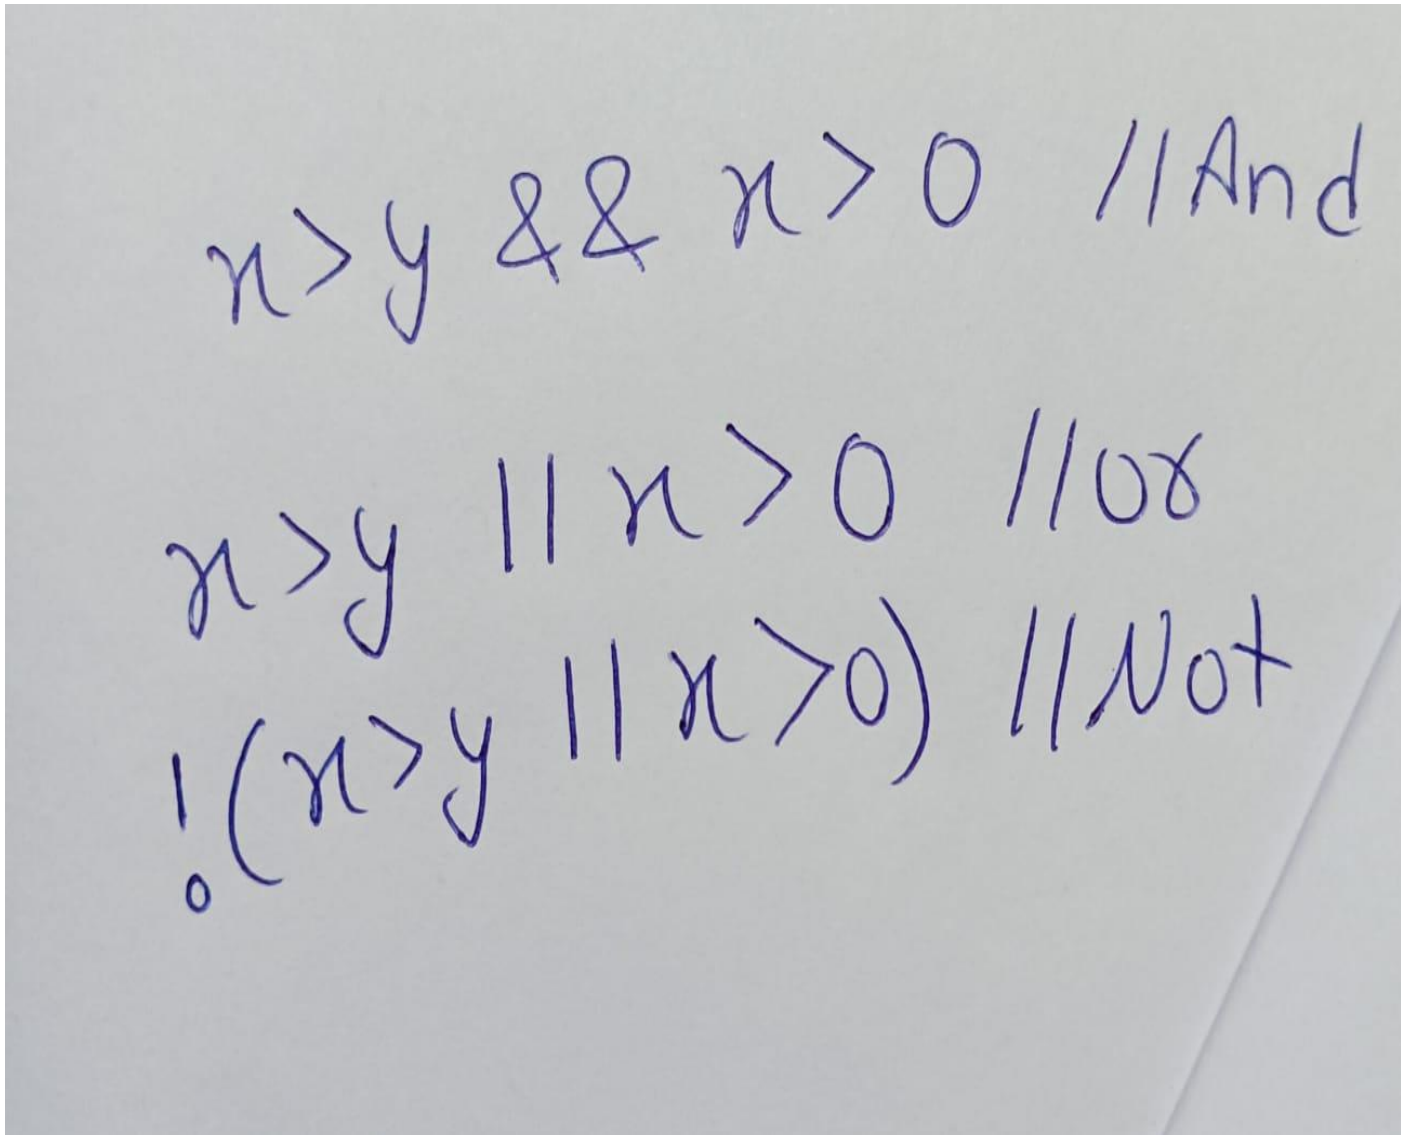 x>y && x>0 //And
x>y || x>0 //or
!(x>y || x>0) //Not